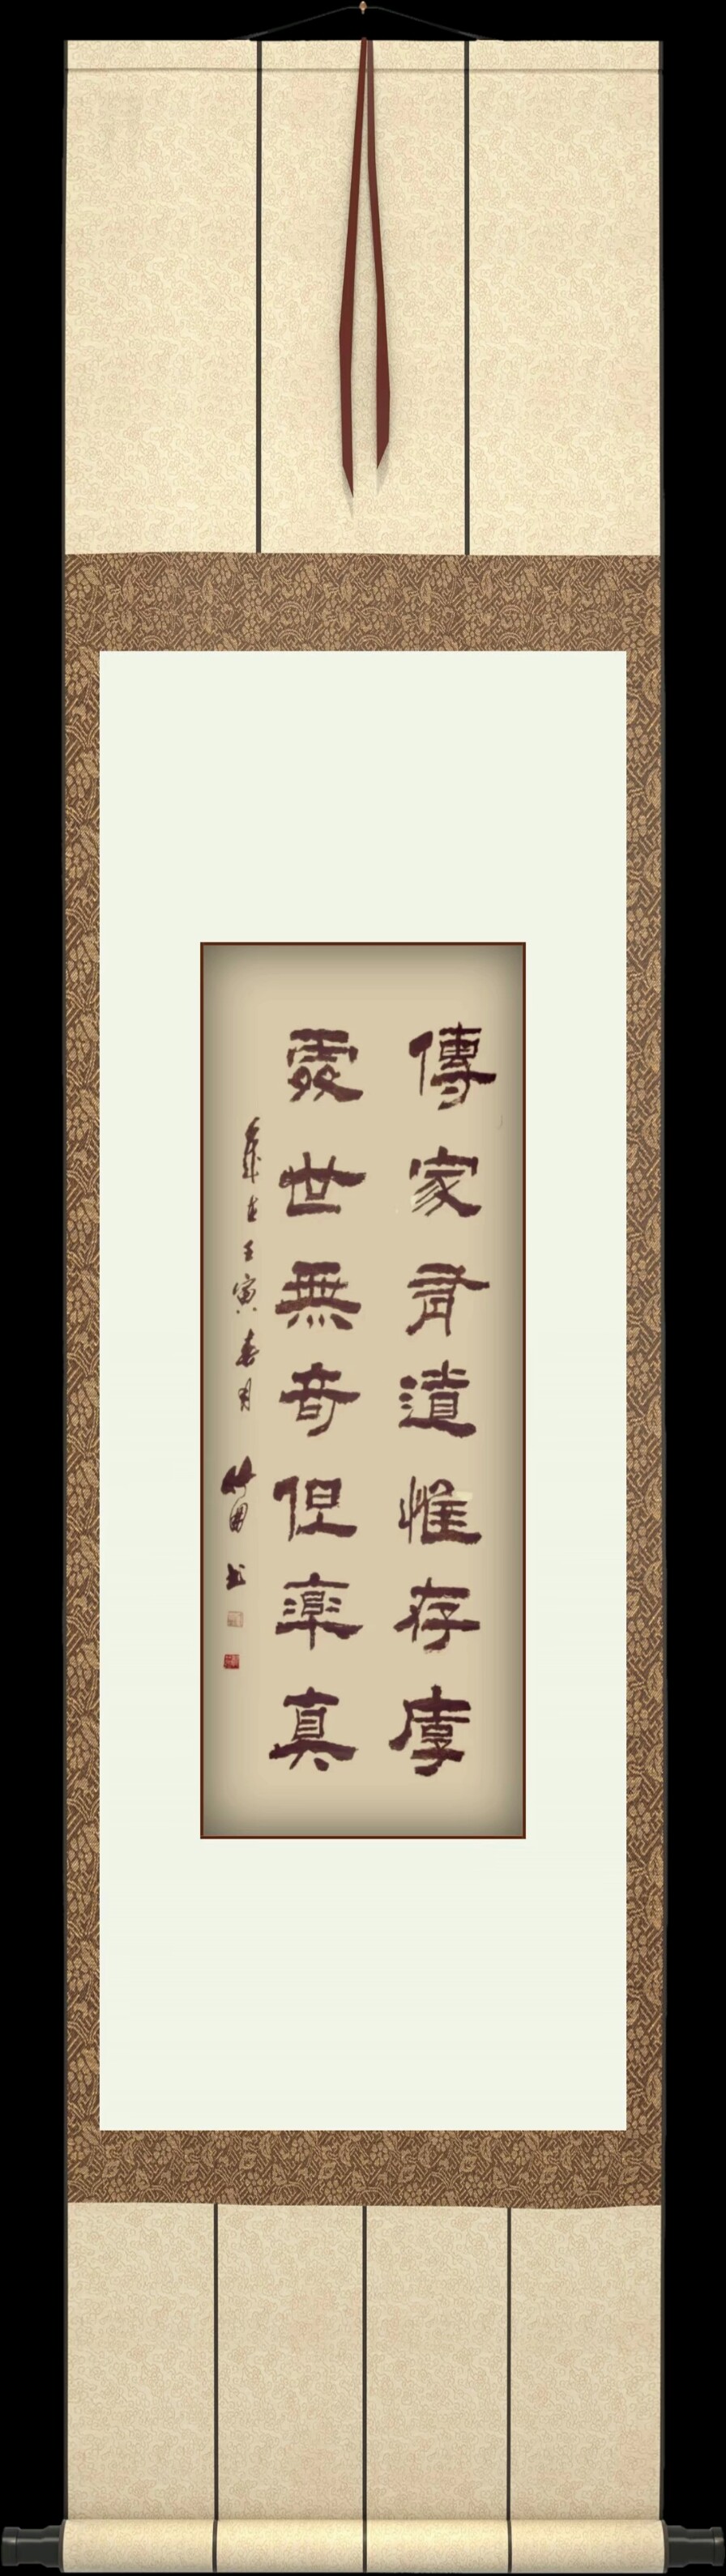 傳家有道惟存厚
處世無奇但率真
歲在壬寅春月